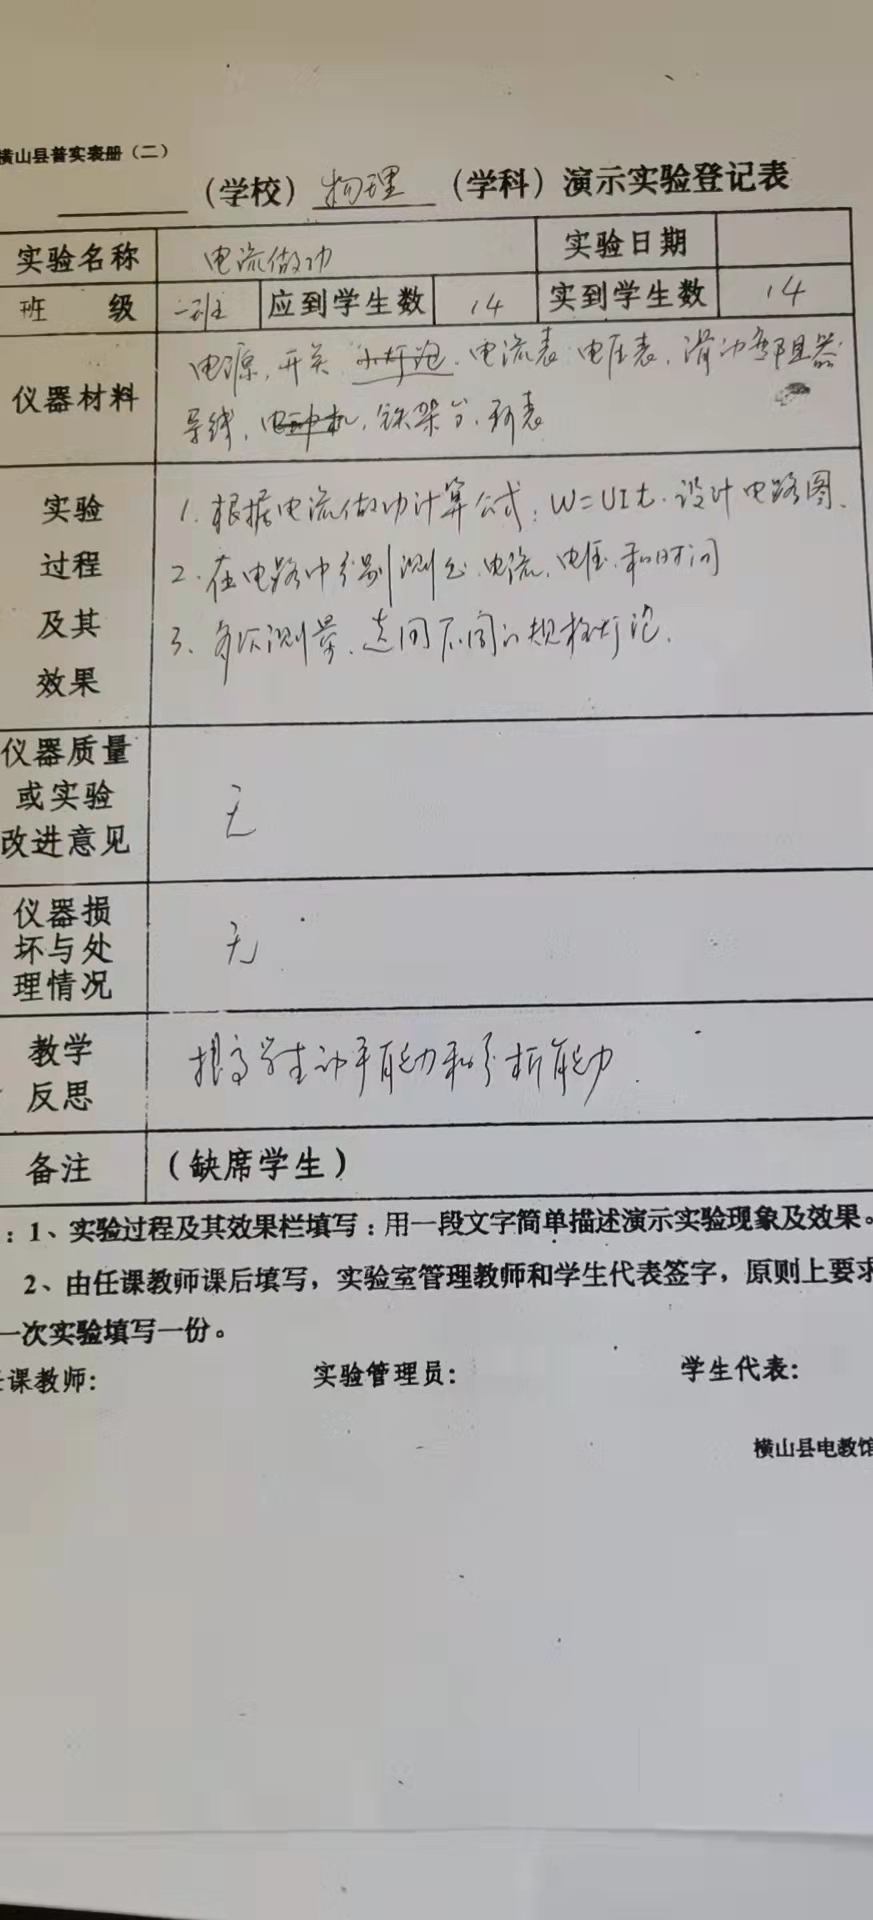 横山县普实表册（二）
（学校）物理（学科）演示实验登记表
实验名称 电流做功 实验日期
班 级 一班 应到学生数 14 实到学生数 14
仪器材料 电源、开关 小灯泡、电流表 电压表、滑动变阻器
导线、电动机、铁架台、秒表
实验过程及其效果
1. 根据电流做功计算公式：W=UIt. 设计电路图、
2. 在电路中分别测出、电流、电压、和时间
3、多次测量、选用不同的规格灯泡.
仪器质量或实验改进意见 无
仪器损坏与处理情况 无
教学反思 提高学生动手能力和分析能力.
备注 （缺席学生）
：1、实验过程及其效果栏填写：用一段文字简单描述演示实验现象及效果。
2、由任课教师课后填写，实验室管理教师和学生代表签字，原则上要求
一次实验填写一份。
课教师： 实验管理员： 学生代表：
横山县电教馆